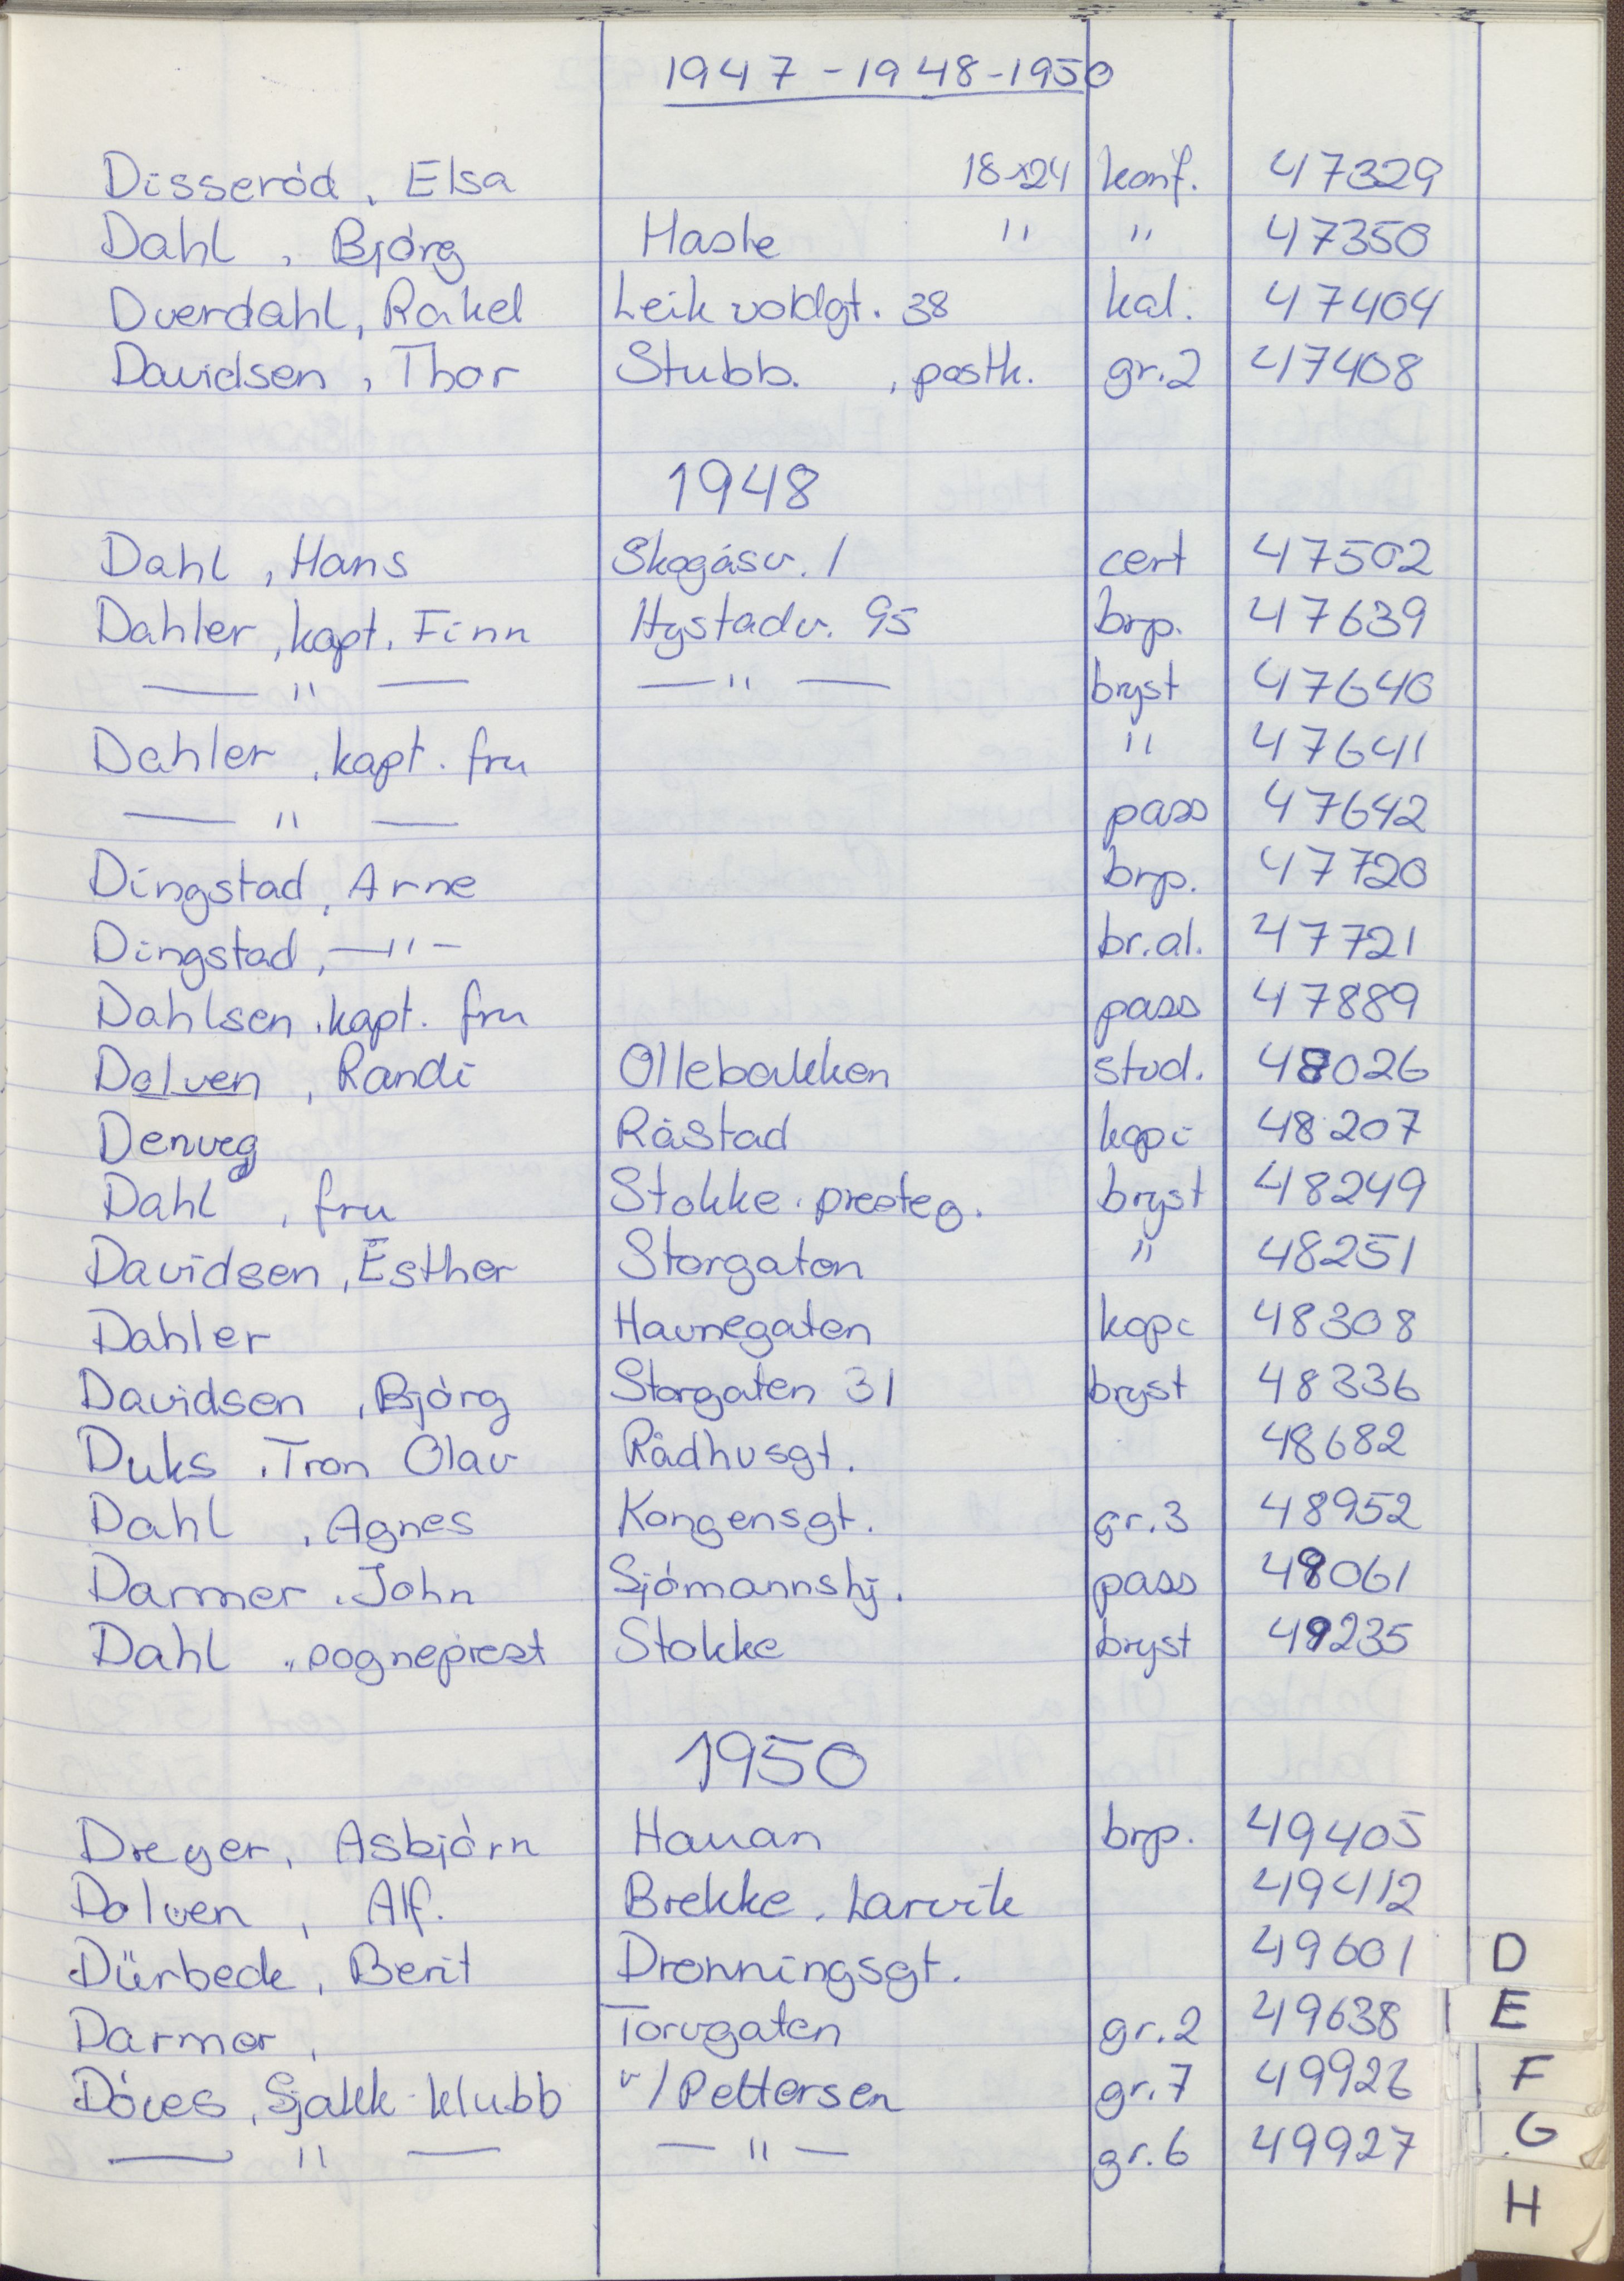 1947 - 1948 - 1950
Disseród, Elsa 18x24 konf. 47329
Dahl, Bjórg Hasle " " 47350
Dverdahl, Rakel Leikvoldgt. 38 kal. 47404
Davidsen, Thor Stubb., postk. gr.2 47408
1948
Dahl, Hans Skogåsv. 1 cert 47502
Dahler, kapt. Finn Hystadv. 95 brp. 47639
— " — — " — bryst 47640
Dahler, kapt. fru " 47641
— " — pass 47642
Dingstad, Arne brp. 47720
Dingstad, —"— br.al. 47721
Dahlsen, kapt. fru pass 47889
Dalven, Randi Ollebakken stud. 48026
Denveg Råstad kopi 48207
Dahl, fru Stokke presteg. bryst 48249
Davidsen, Esther Storgaten " 48251
Dahler Havnegaten kopi 48308
Davidsen, Bjórg Storgaten 31 bryst 48336
Duks, Tron Olav Rådhusgt. 48682
Dahl, Agnes Kongensgt. gr.3 48952
Darmer, John Sjómannshj. pass 49061
Dahl, sogneprest Stokke bryst 49235
1950
Dreyer, Asbjórn Hauan brp. 49405
Dolven, Alf. Brekke, Larvik 49412
Dürbeck, Berit Dronningsgt. 49601
Darmer, Torvgaten gr.2 49638
Dóves, Sjakk-klubb v/Pettersen gr.7 49926
— " — — " — gr.6 49927
D
E
F
G
H